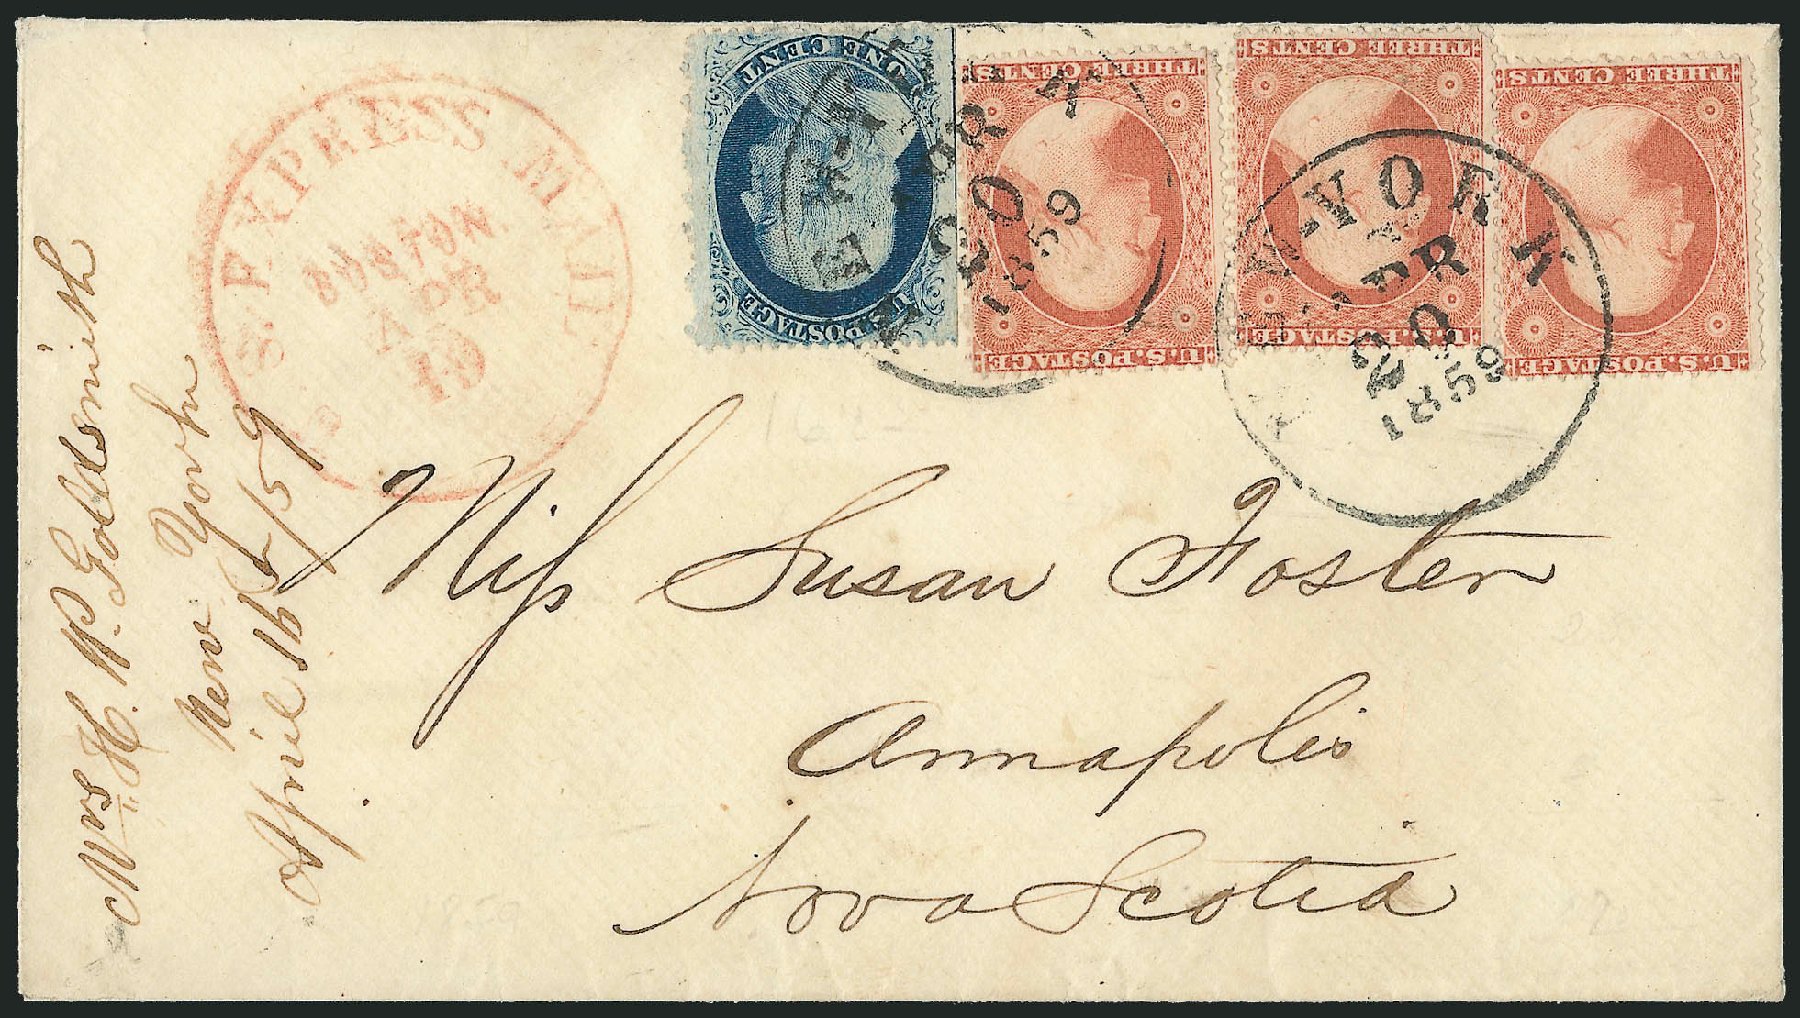 U.S. EXPRESS MAIL
BOSTON
APR
19
ONE CENT
U.S. POSTAGE
THREE CENTS
U.S. POSTAGE
THREE CENTS
U.S. POSTAGE
THREE CENTS
U.S. POSTAGE
NEW-YORK
APR
20
1859
NEW-YORK
APR
20
1859
Mrs H. W. Goldsmith
New York
April 16th/59
Miss Susan Foster
Annapolis
Nova Scotia